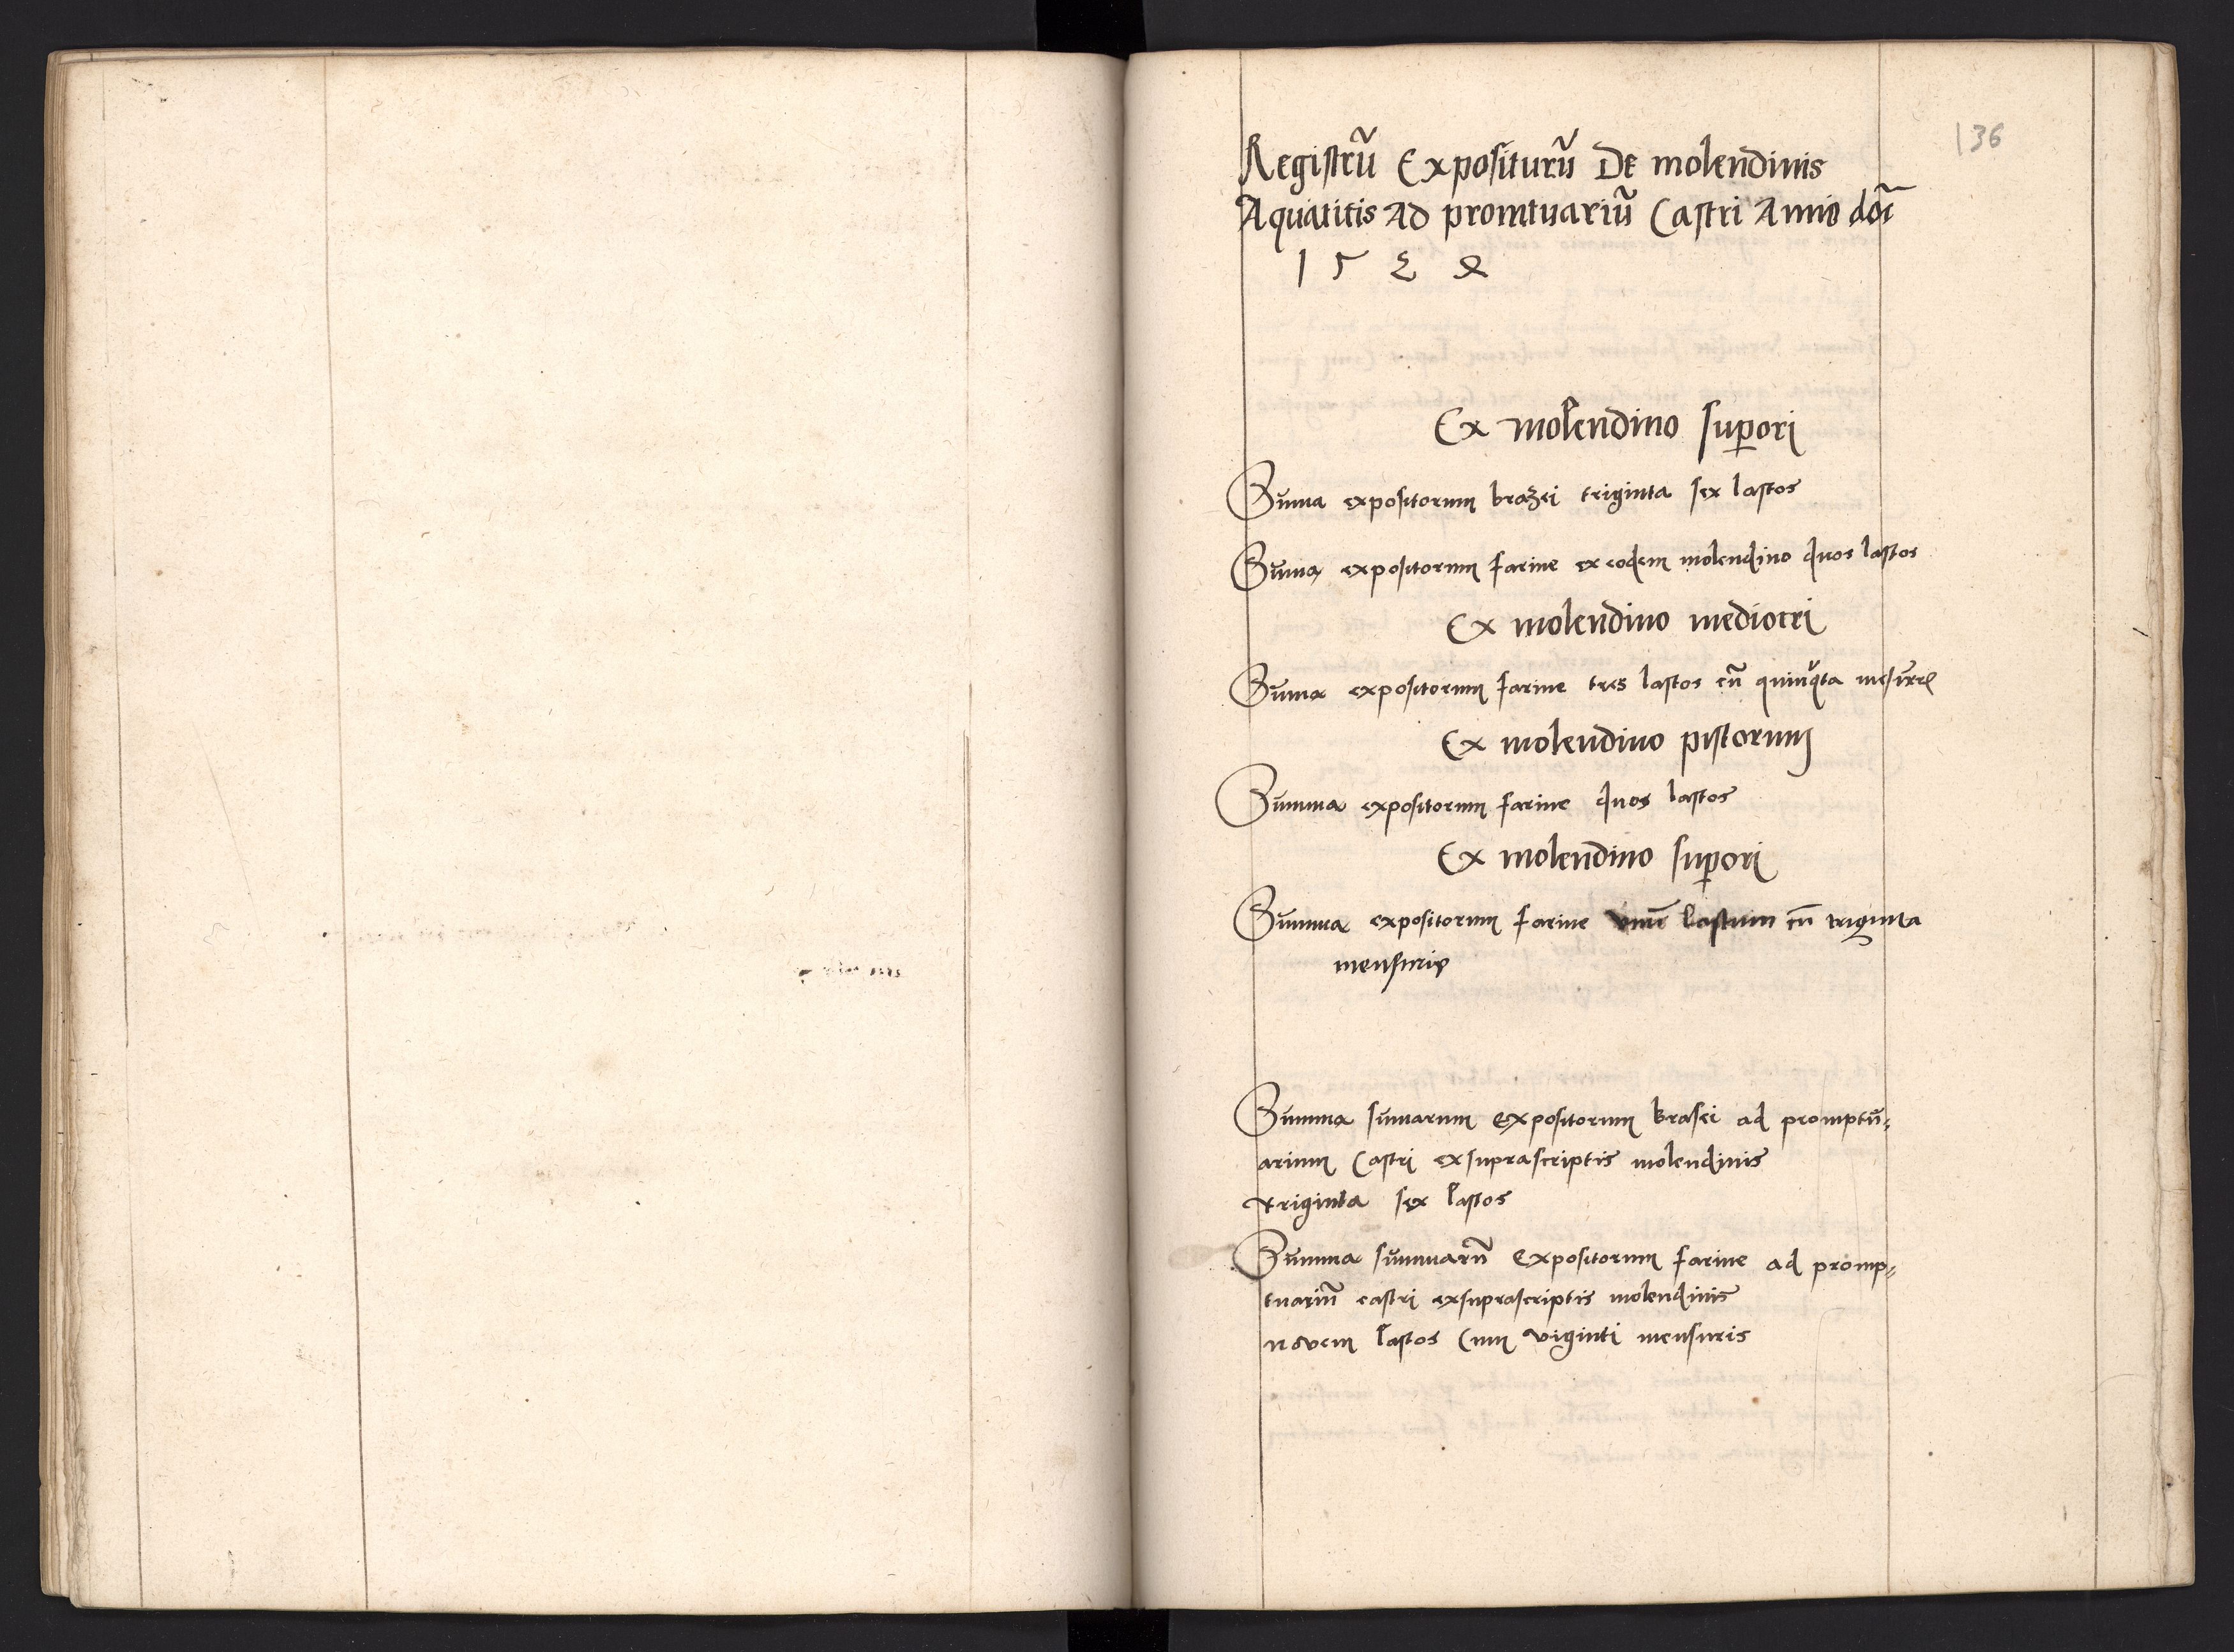 136
Registrũ Expositurũ De molendinis
Aquatitis Ad promtuariũ Castri Anno dõi
1524
Ex molendino supori
Suma expositorum brazei triginta sex lastos
Suma expositorum farine ex eodem molendino duos lastos
Ex molendino mediocri
Suma expositorum farine tres lastos cũ
Ex molendino pistorum
Summa expositorum farine duos lastos
Ex molendino supori
Summa expositorum farine vnũ lastum cũ triginta
mensuris
Summa sumarum expositorum brasei ad promptu⸗
arium Castri exsuprascriptis molendinis
triginta sex lastos
Summa summarũ Expositorum farine ad promp⸗
tuariũ castri exsuprascriptis molendinis
novem lastos Cum viginti mensuris